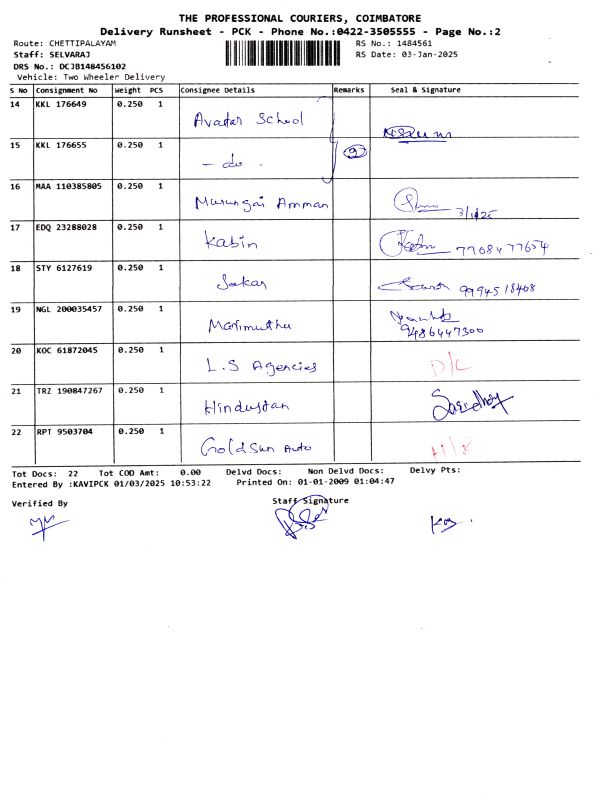 THE PROFESSIONAL COURIERS, COIMBATORE
Delivery Runsheet - PCK - Phone No.:0422-3505555 - Page No.:2
Route: CHETTIPALAYAM RS No.: 1484561
Staff: SELVARAJ RS Date: 03-Jan-2025
DRS No.: DCJB148456102
Vehicle: Two Wheeler Delivery
S No Consignment No Weight PCS Consignee Details Remarks Seal & Signature
14 KKL 176649 0.250 1 Avadar School
15 KKL 176655 0.250 1 - do - 9
16 MAA 110385805 0.250 1 Murungai Amman 3/1/25
17 EDQ 23288028 0.250 1 Kabin 7708477654
18 STY 6127619 0.250 1 Sakar 9994518408
19 NGL 200035457 0.250 1 Marimuthu 9486447300
20 KOC 61872045 0.250 1 L.S Agencies D/L
21 TRZ 190847267 0.250 1 Hindustan
22 RPT 9503704 0.250 1 Gold Sun Auto
Tot Docs: 22 Tot COD Amt: 0.00 Delvd Docs: Non Delvd Docs: Delvy Pts:
Entered By :KAVIPCK 01/03/2025 10:53:22 Printed On: 01-01-2009 01:04:47
Verified By Staff Signature